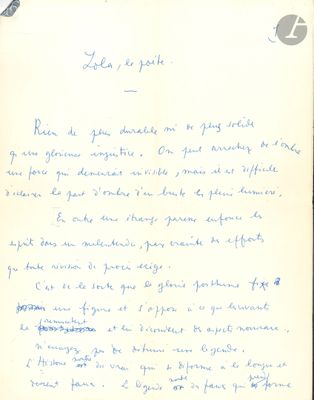 Zola, le poète.
Rien de plus durable ni de plus solide
qu'une glorieuse injustice. On peut arracher de l'ombre
une force qui demeurait invisible, mais il est difficile
d'éclairer la part d'ombre d'un buste en pleine lumière.
En outre une étrange paresse enfonce les
esprits dans un malentendu, par crainte des efforts
que toute révision de procès exige.
C'est de la sorte que la gloire posthume fixe
une figure et s'oppose à ce que les vivants
la remuent et lui découvrent des aspects nouveaux.
N'essayez pas de détruire une légende.
L'Histoire du vrai qui se déforme à la longue et
devient faux. La légende du faux qui prend forme